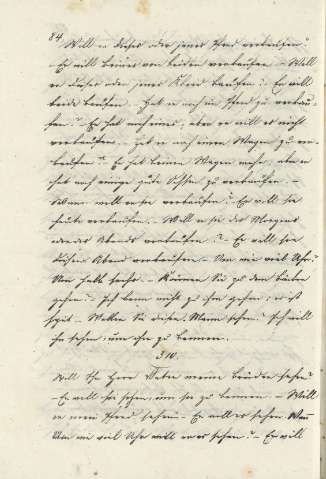 84
Will er dieses oder jenes Pferd verkaufen?
– Er will keines von beiden verkaufen. – Will
er dieses oder jenes Rind kaufen? – Er will
beide kaufen. – Hat er noch ein Pferd zu verkau-
fen? – Er hat noch eines, aber er will es nicht
verkaufen. – Hat er noch einen Wagen zu ver-
kaufen? – Er hat keinen Wagen mehr, aber er
hat noch einige gute Ochsen zu verkaufen. –
Wann will er sie verkaufen? – Er will sie
heute verkaufen. – Will er sie des Morgens
oder des Abends verkaufen? – Er will sie
diesen Abend verkaufen – Um wie viel Uhr?
Um halb sechs. – Können Sie zu dem Bäcker
gehen? – Ich kann nicht zu ihm gehen; es ist
spät. – Wollen Sie diesen Mann sehen? Ich will
ihn sehen, um ihn zu kennen.
310.
Will Ihr Herr Vater meine Brüder sehen?
– Er will sie sehen, um sie zu kennen. – Will
er mein Pferd sehen – Er will es sehen.
Um wie viel Uhr will er es sehen? – Er will